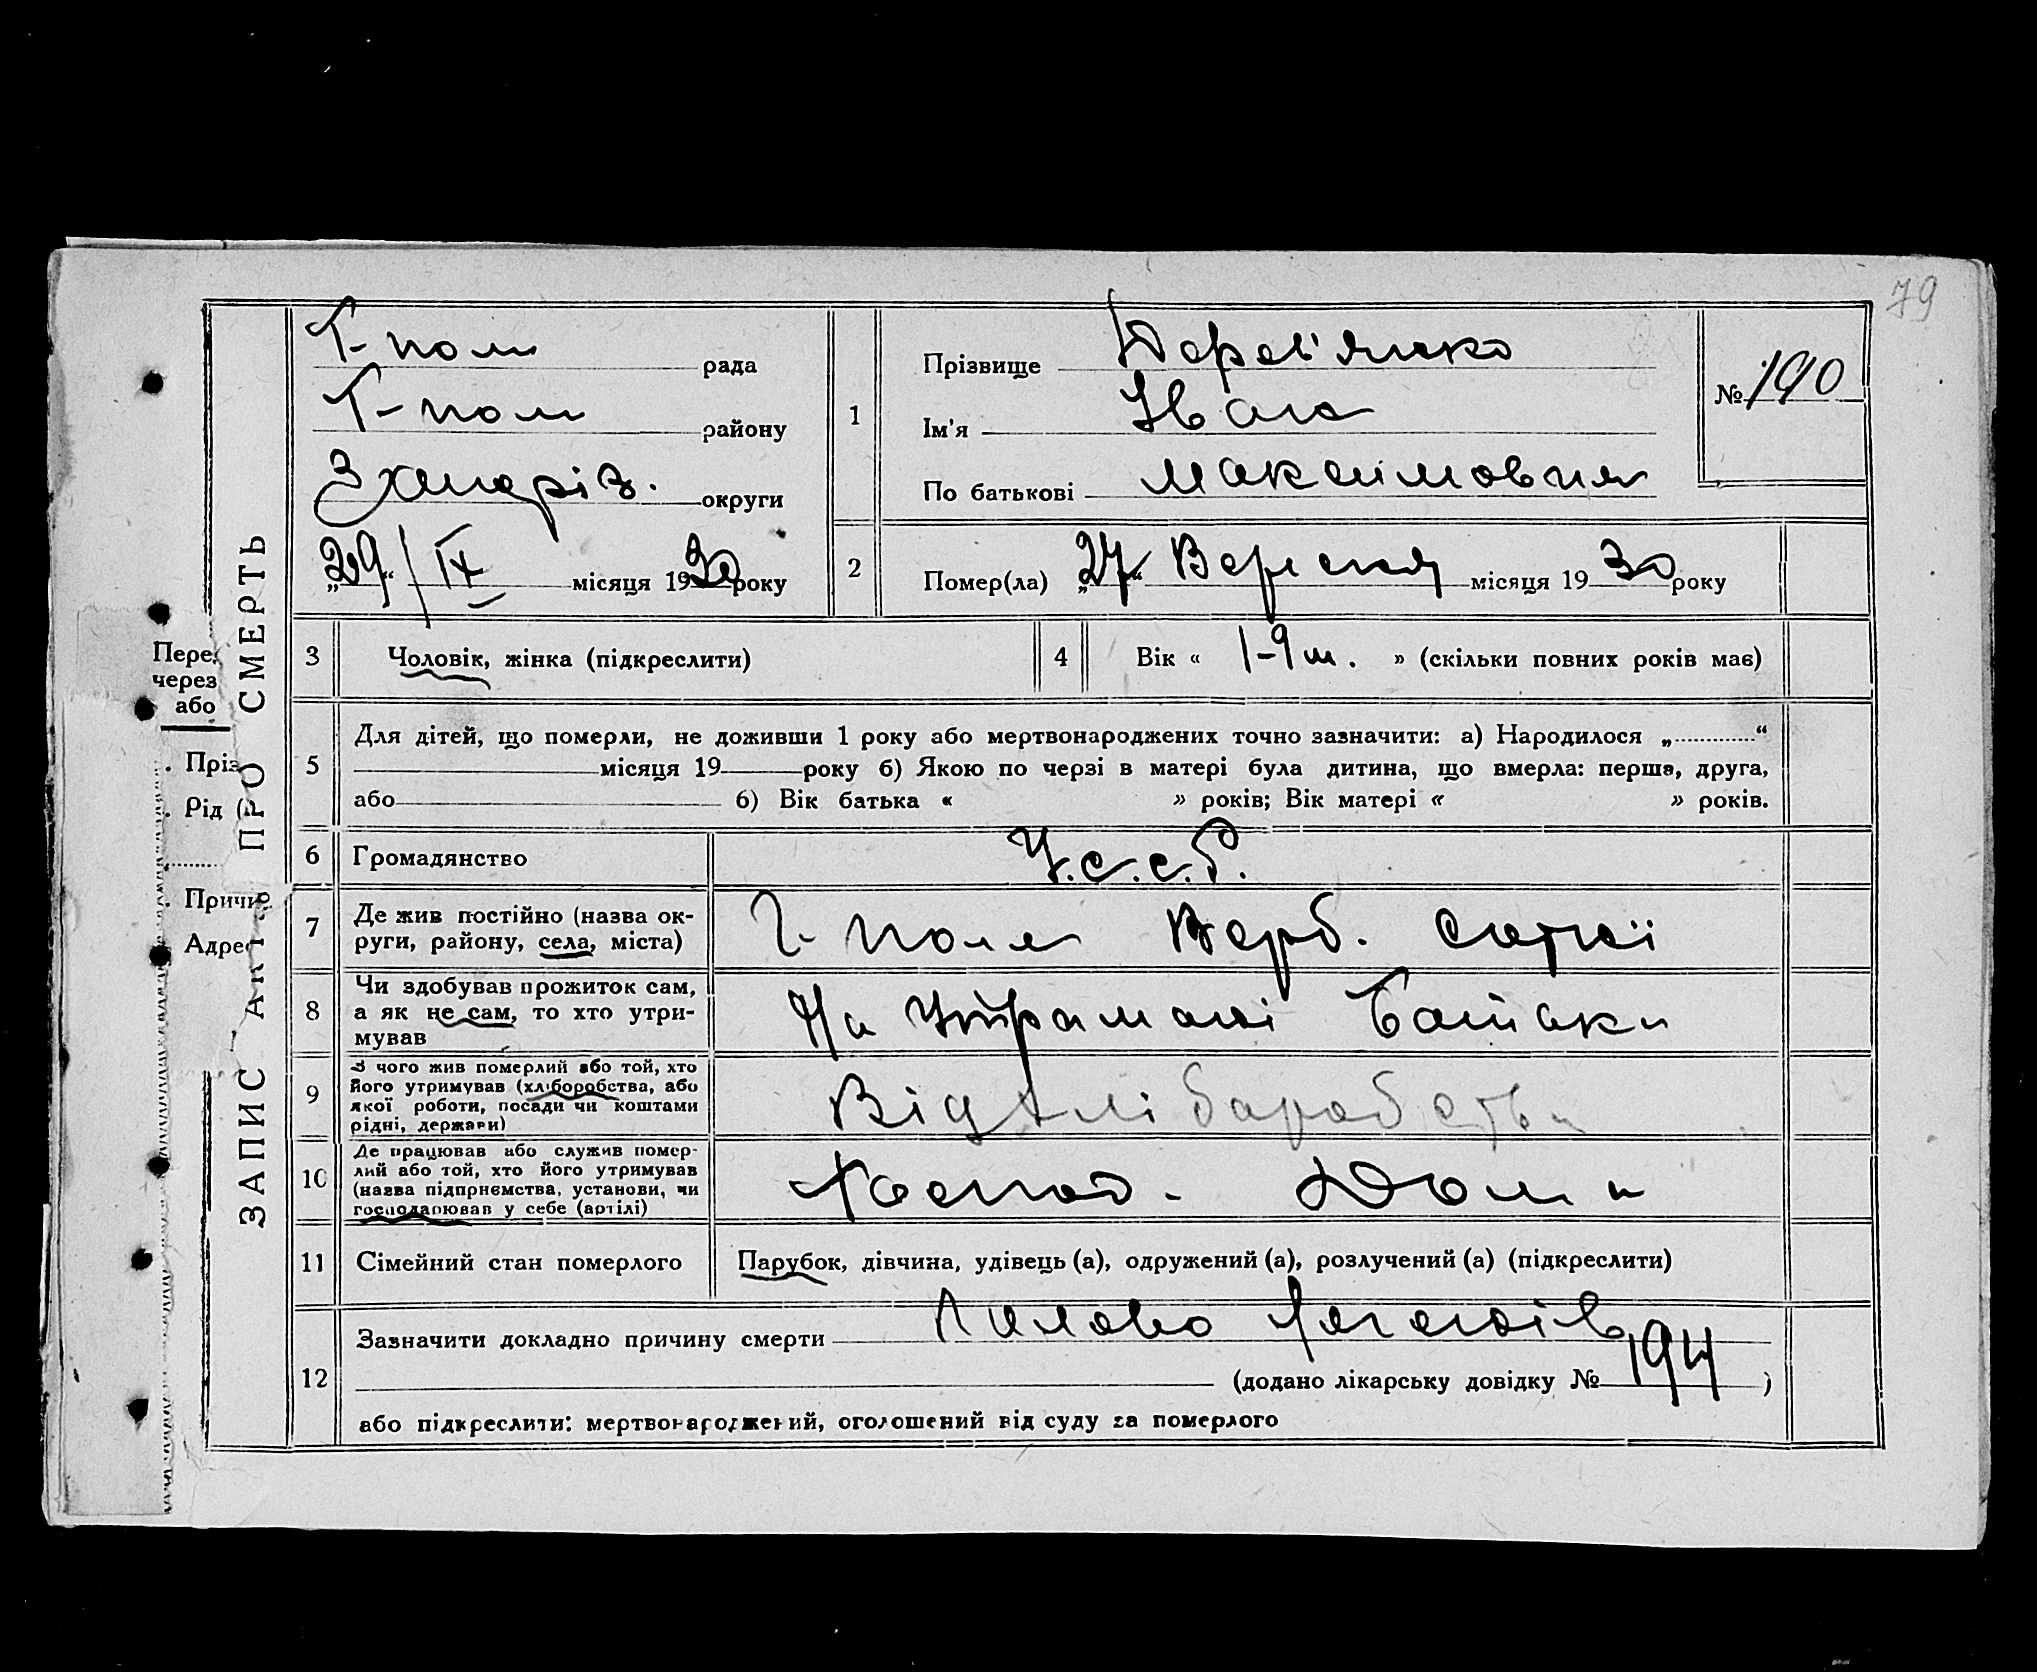 79
ЗАПИС АКТ ПРО СМЕРТЬ
Г-пол рада
Г-пол району
Запоріз. округи
„29“ / IX місяця 1930 року
1
Прізвище Дерев'янко
Ім'я Іван
По батькові Максимович
№ 190
2
Помер(ла) „27“ Вересня місяця 1930 року
3 Чоловік, жінка (підкреслити)
4 Вік « 1-9 м. » (скільки повних років має)
5 Для дітей, що померли, не доживши 1 року або мертвонароджених точно зазначити: а) Народилося „............“
місяця 19 року б) Якою по черзі в матері була дитина, що вмерла: перша, друга,
або б) Вік батька « » років; Вік матері « » років.
6 Громадянство У.С.С.Р.
7 Де жив постійно (назва ок-
руги, району, села, міста)
Г-Поле Верб. сотні
8 Чи здобував прожиток сам,
а як не сам, то хто утри-
мував
На Утримані Батька
9 З чого жив померлий або той, хто
його утримував (хліборобства, або
якої роботи, посади чи коштами
рідні, держави)
Від хліборобства
10 Де працював або служив помер-
лий або той, хто його утримував
(назва підприємства, установи, чи
господарював у себе (артілі)
Господ. Дома
11 Сімейний стан померлого
Парубок, дівчина, удівець (а), одружений (а), розлучений (а) (підкреслити)
12 Зазначити докладно причину смерти
(додано лікарську довідку № 194)
або підкреслити: мертвонароджений, оголошений від суду за померлого
Пере
через
або
Пріз
Рід (
Причи
Адрес